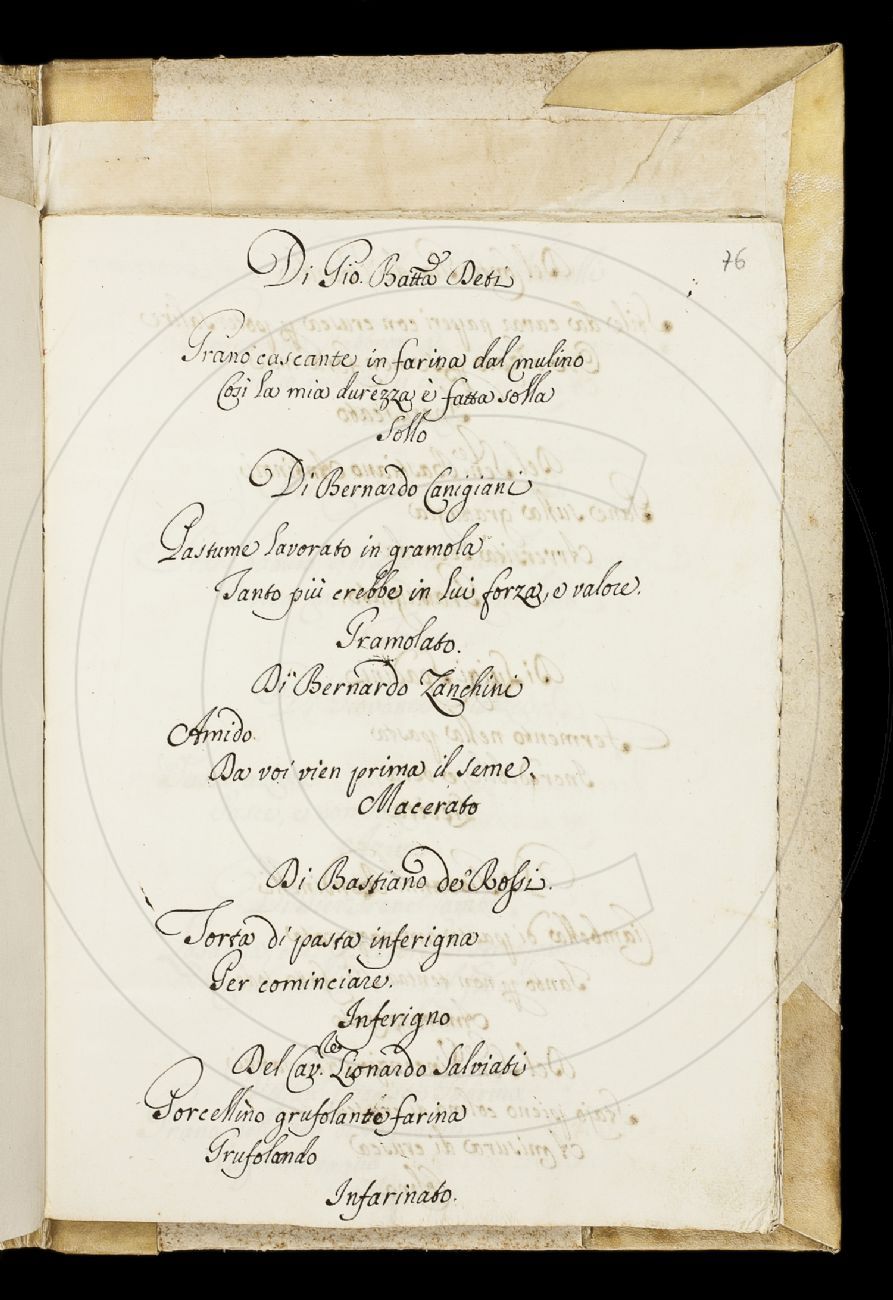 76
Di Gio. Batta Deti
Grano cascante in farina dal mulino
Così la mia durezza è fatta solla
Sollo
Di Bernardo Canigiani
Pastume lavorato in gramola
Tanto più crebbe in lui forza, e valore.
Gramolato.
Di Bernardo Zanchini
Amido.
Da voi vien prima il seme.
Macerato
Di Bastiano de' Rossi.
Torta di pasta inferigna
Per cominciare.
Inferigno
Del Cav.re Lionardo Salviati
Porcellino grufolante farina
Grufolando
Infarinato.